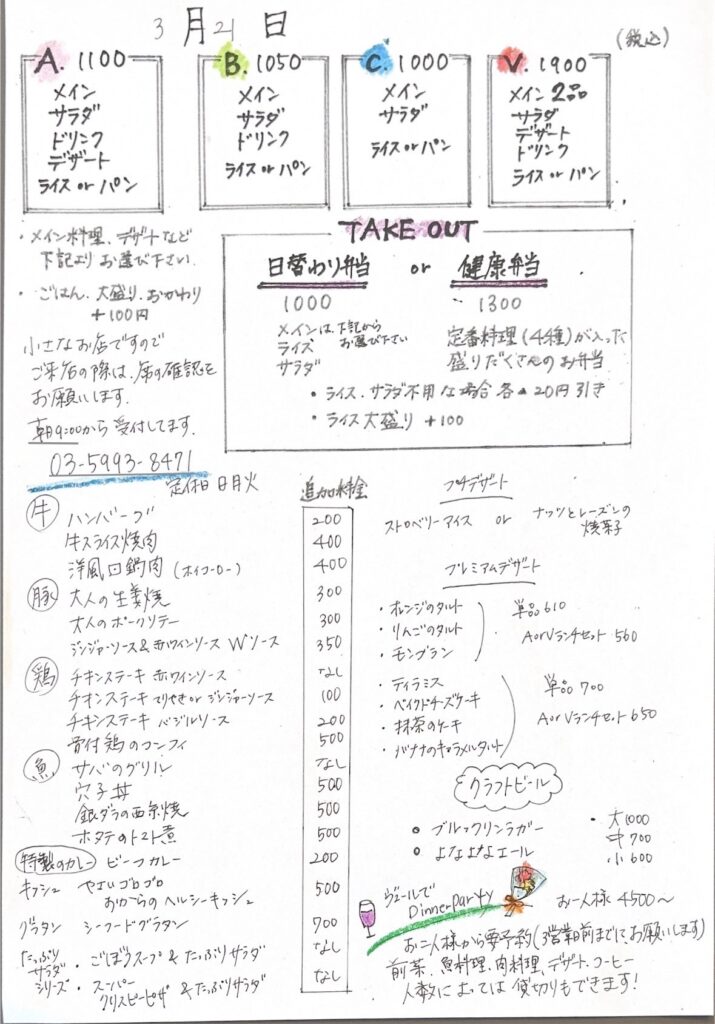 3月21日
(税込)
A. 1100
メイン
サラダ
ドリンク
デザート
ライス or パン
B. 1050
メイン
サラダ
ドリンク
ライス or パン
C. 1000
メイン
サラダ
ライス or パン
V. 1900
メイン 2品
サラダ
デザート
ドリンク
ライス or パン
・メイン料理、デザートなど
下記よりお選び下さい
・ごはん、大盛り、おかわり
+100円
小さなお店ですので
ご来店の際は、席の確認を
お願いします.
朝9:00から受付してます.
03-5993-8471
定休日 日月火
TAKE OUT
日替わり弁当 or 健康弁当
1000
メインは、下記から
お選び下さい
ライス
サラダ
1300
定番料理(4種)が入った
盛りだくさんのお弁当
・ライス、サラダ不用な場合 各▲20円引き
・ライス大盛り +100
追加料金
牛 ハンバーグ 200
牛スライス焼肉 400
洋風回鍋肉 (ホイコーロー) 400
豚 大人の生姜焼 300
大人のポークソテー 300
ジンジャーソース&赤ワインソース Wソース 350
鶏 チキンステーキ 赤ワインソース なし
チキンステーキ てりやき or ジンジャーソース 100
チキンステーキ バジルソース 200
骨付鶏のコンフィ 500
魚 サバのグリル なし
穴子丼 500
銀ダラの西京焼 500
ホタテのトマト煮 500
特製のカレー ビーフカレー 200
キッシュ やさいゴロゴロ
おからのヘルシーキッシュ 500
グラタン シーフードグラタン 700
たっぷり
サラダ
シリーズ
・ごぼうスープ & たっぷりサラダ なし
・スーパー
クリスピーピザ & たっぷりサラダ なし
プチデザート
ストロベリーアイス or ナッツとレーズンの
焼菓子
プレミアムデザート
・オレンジのタルト
・りんごのタルト
・モンブラン
単品610
AorVランチセット 560
・ティラミス
・ベイクドチーズケーキ
・抹茶のケーキ
・バナナのキャラメルタルト
単品700
AorVランチセット 650
クラフトビール
・ブルックリンラガー
・よなよなエール
・大1000
中700
小600
ヴェールで
Dinner party
お一人様 4500〜
お二人様から要予約(3営業前までに、お願いします)
前菜、魚料理、肉料理、デザート、コーヒー
人数によっては貸切りもできます!